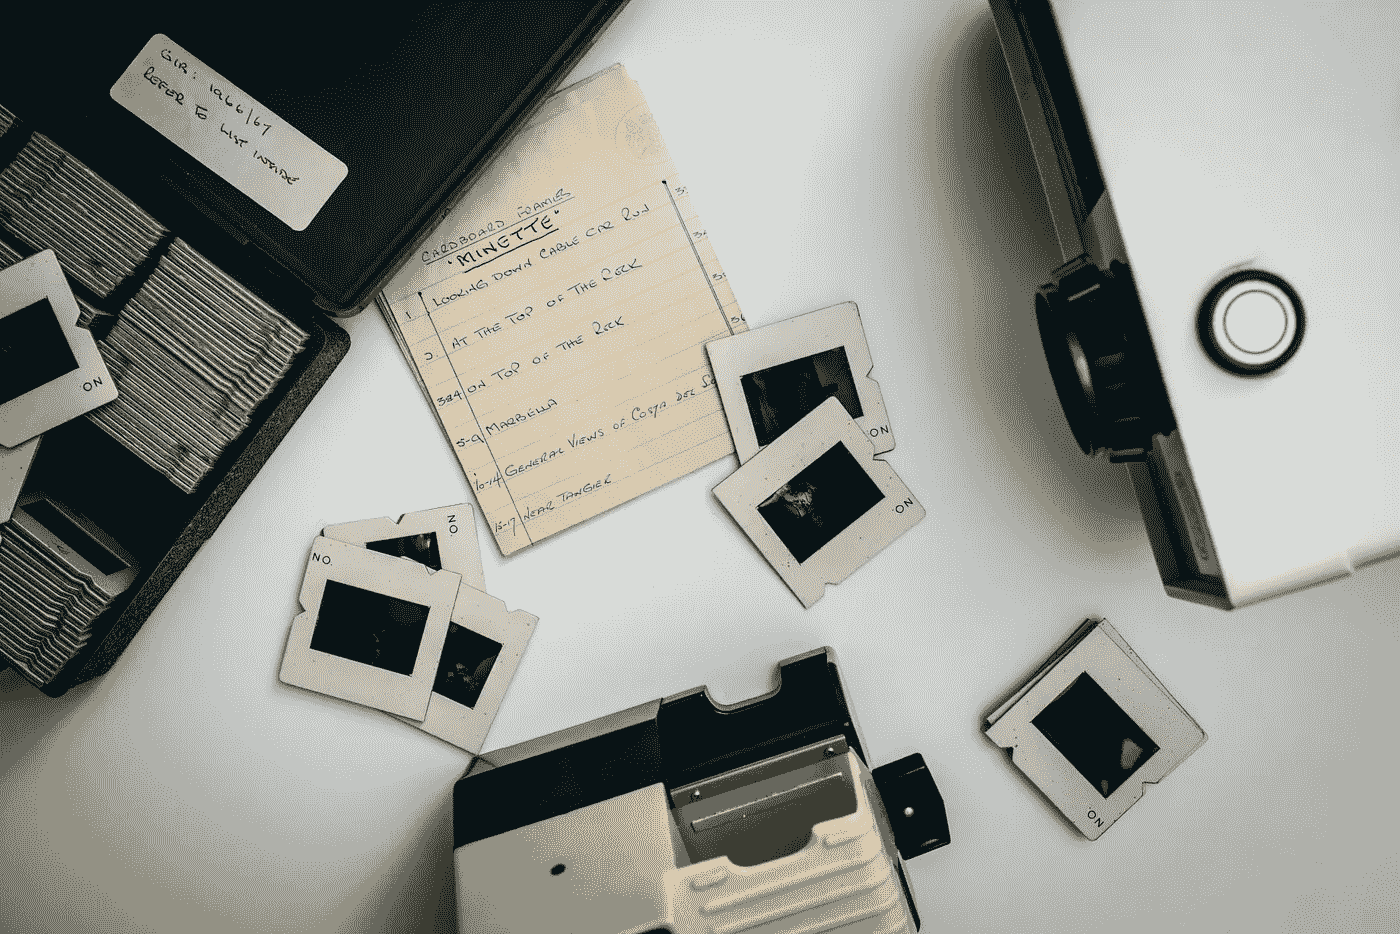 GIB: 1966/67
REFER TO LIST INSIDE
CARDBOARD FRAMES
"MINETTE"
1. LOOKING DOWN CABLE CAR RUN
2. AT THE TOP OF THE ROCK
3&4 ON TOP OF THE ROCK
5-9 MARBELLA
10-14 GENERAL VIEWS OF COSTA DEL
15-17 NEAR TANGIER
NO
NO.
NO
NO.
NO
NO.